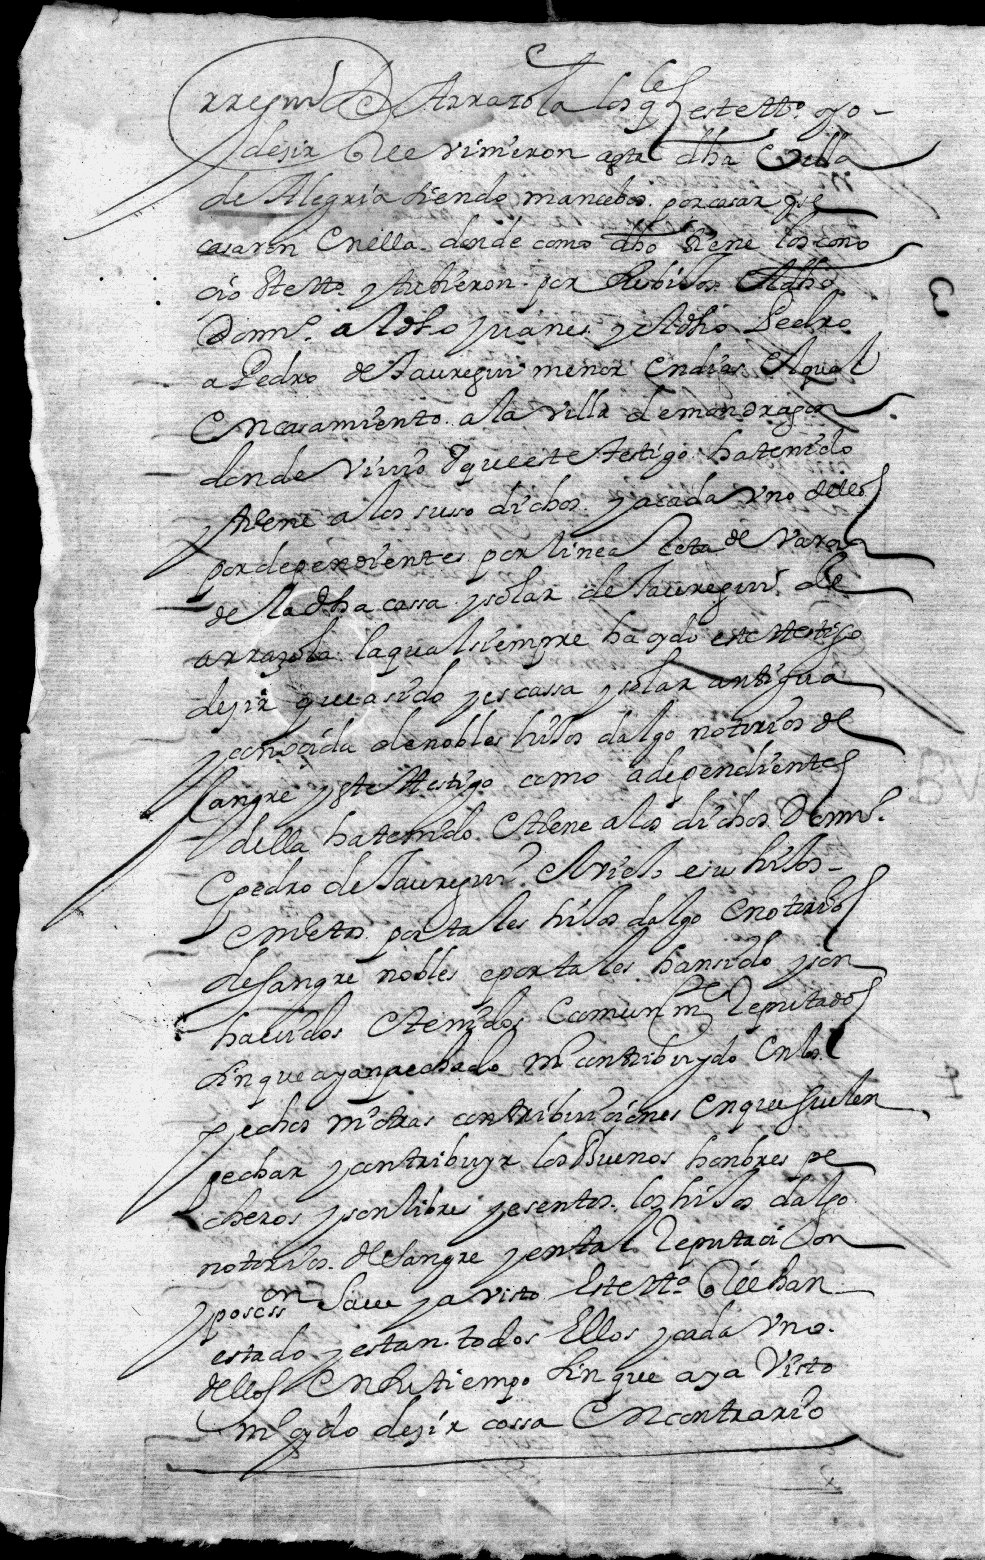 rregui de Arrazola los q̃les este tto. oyo
dezir que vinieron a esta dha villa
de Alegria siendo mancebos. por casar y se
casaron en ella. donde como dho tiene los cono
cio este tto. y tubieron. por su hijo. el dho
Domi.º al dho Juanes y el dho Pedro
a Pedro de Jauregui menor en dias el qual
en casamiento. a la villa de mondragon
donde vivio. y que este testigo ha tenido
y tiene a los suso dichos. y a cada vno dellos
por dependientes por linea Reta de varon
de la dha cassa y solar de Jauregui de
arrazola. la qual siempre ha oydo este testigo
dezir que a sido y es cassa y solar antigua
y conocida de nobles hijos dalgo notorios de
sangre y este testigo como a dependientes
della ha tenido. e tiene a los dichos Domi.º
e pedro de Jauregui. e su hijos
e nietos. por tales hijos dalgo e notorios
de sangre nobles e por tales han sido y son
havidos e tenidos e comunmte Reputados
sin que ayan pechado ni contribuydo en los
pechos ni otras contribuiciones en que suelen
pechar y contribuyr los Buenos honbres pe
cheros y son libres y esentos. los hijos dalgo
notorios. de sangre y en tal Reputacion
y posession save y a visto este tto. que han
estado y estan. todos ellos y cada vno.
dellos en su tiempo sin que aya visto
ni oydo dezir cossa en contrario